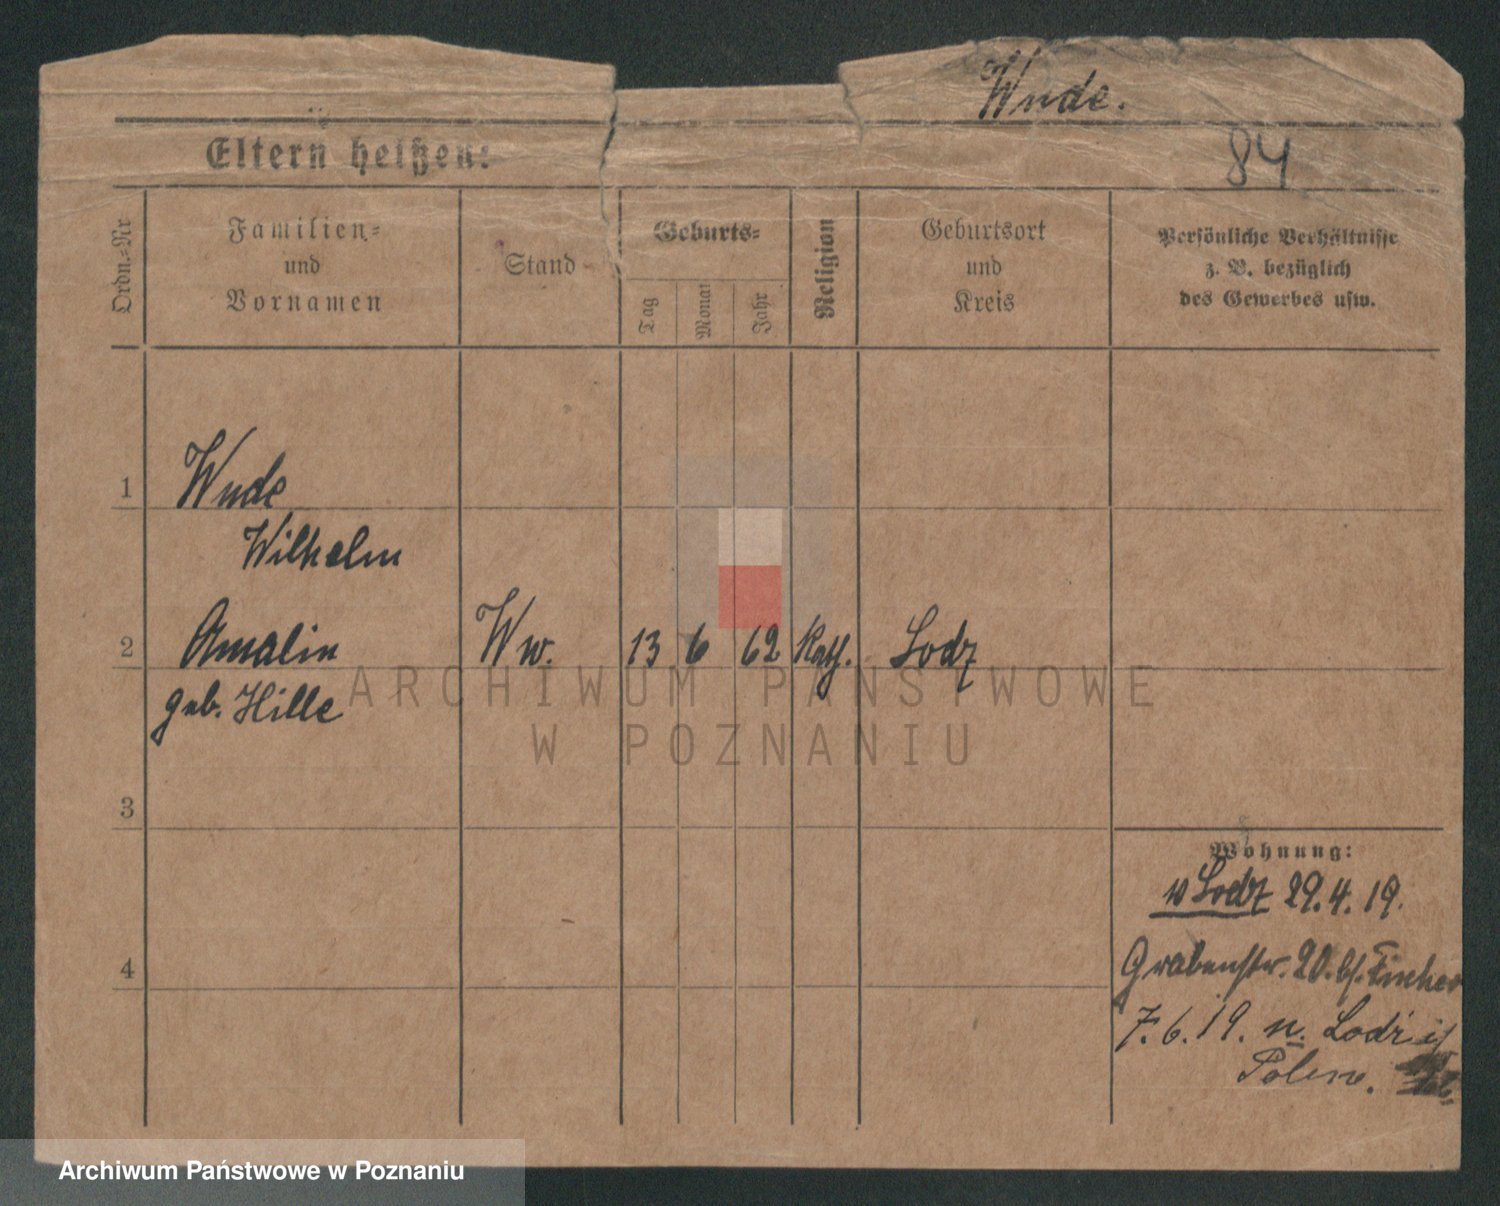 Wude.
84
Eltern heißen:
Ordn.-Nr
Familien-
und
Vornamen
Stand
Geburts-
Tag
Monat
Jahr
Religion
Geburtsort
und
Kreis
Persönliche Verhältnisse
z. B. bezüglich
des Gewerbes usw.
1 Wude
Wilhelm
2 Amalin Ww. 13 6 62 Kath. Lodz
geb. Hille
ARCHIWUM PAŃSTWOWE
W POZNANIU
3
Wohnung:
v Lodz 29.4.19.
Grabenstr. 20. b/. Fischer
4
7.6.19. n. Lodz i/
Polen.
Archiwum Państwowe w Poznaniu